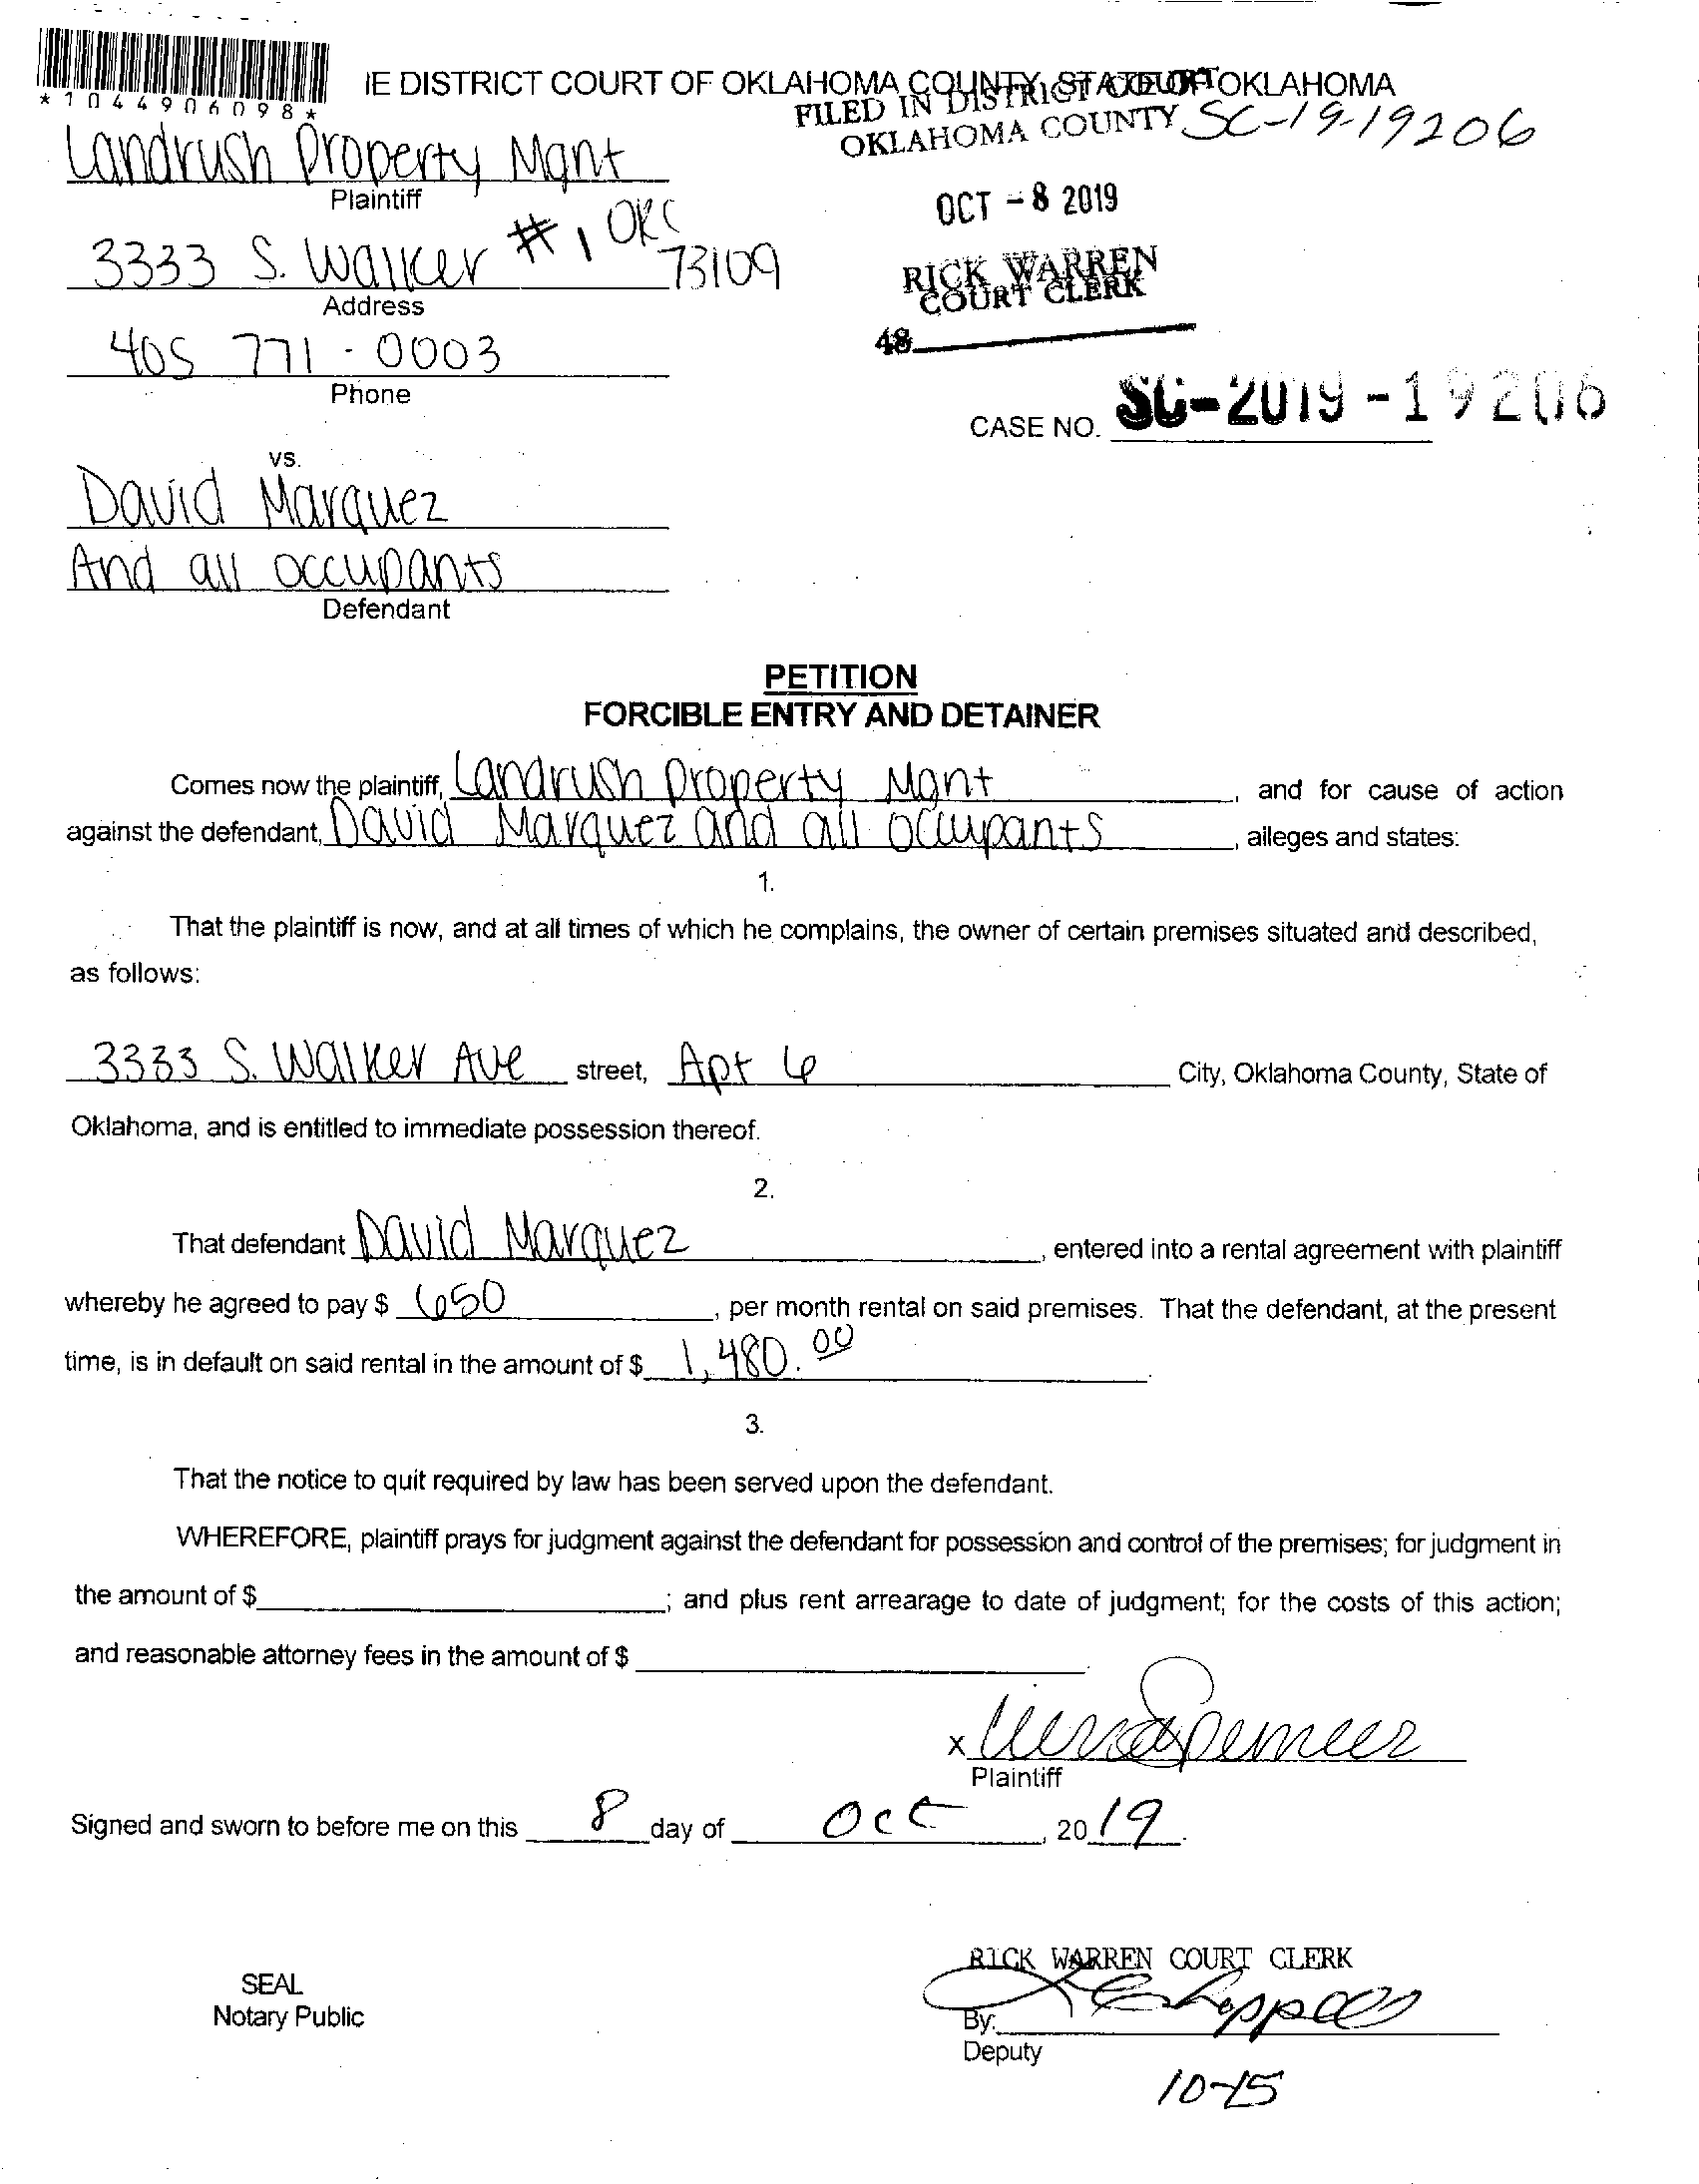 *1044906098*
IE DISTRICT COURT OF OKLAHOMA COUNTY, STATE OF OKLAHOMA
FILED IN DISTRICT COURT
OKLAHOMA COUNTY SC-19-19206
Landrush Property Mgnt
Plaintiff
OCT - 8 2019
3333 S. Walker #1 OKC 73109
Address
RICK WARREN
COURT CLERK
48
405 771-0003
Phone
CASE NO. SC-2019-19206
vs.
David Marquez
And all occupants
Defendant
PETITION
FORCIBLE ENTRY AND DETAINER
Comes now the plaintiff, Landrush Property Mgnt, and for cause of action
against the defendant, David Marquez and all occupants, alleges and states:
1.
That the plaintiff is now, and at all times of which he complains, the owner of certain premises situated and described,
as follows:
3333 S. Walker Ave street, Apt 6 City, Oklahoma County, State of
Oklahoma, and is entitled to immediate possession thereof.
2.
That defendant David Marquez, entered into a rental agreement with plaintiff
whereby he agreed to pay $ 650, per month rental on said premises. That the defendant, at the present
time, is in default on said rental in the amount of $ 1,480.00.
3.
That the notice to quit required by law has been served upon the defendant.
WHEREFORE, plaintiff prays for judgment against the defendant for possession and control of the premises; for judgment in
the amount of $; and plus rent arrearage to date of judgment; for the costs of this action;
and reasonable attorney fees in the amount of $.
x
Plaintiff
Signed and sworn to before me on this 8 day of Oct, 2019.
RICK WARREN COURT CLERK
SEAL
Notary Public
By:
Deputy
10-15